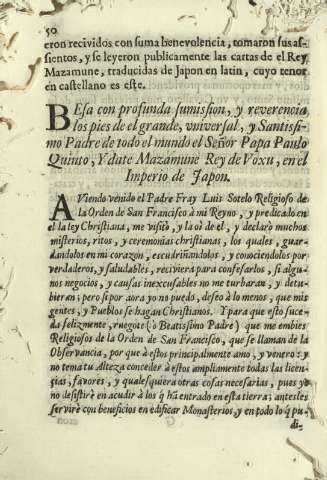 50
eron recividos con suma benevolencia, tomaron sus as-
sientos, y se leyeron publicamente las cartas de el Rey
Mazamune, traducidas de Japon en latin, cuyo tenor
en castellano es este.
BEsa con profunda sumission, y reverencia
los pies de el grande, vniversal, y Santissi-
mo Padre de todo el mundo el Señor Papa Paulo
Quinto, Ydate Mazamune Rey de Voxu, en el
Imperio de Japon.
AViendo venido el Padre Fray Luis Sotelo Religioso de
la Orden de San Francisco à mi Reyno, y predicado en
el la ley Christiana, me visitò, y la oì de èl, y declarò muchos
misterios, ritos, y ceremonias christianas, los quales, guar-
dandolos en mi corazon, escudriñandolos, y conociendolos por
verdaderos, y saludables, reciviera para confesarlos, si algu-
nos negocios, y causas inexcusables no me turbaran, y detu-
bieran; pero si por aora yo no puedo, deseo à lo menos, que mis
gentes, y Pueblos se hagan Christianos. Y para que esto suce-
da felizmente, ruegote (ò Beatissimo Padre) que me embies
Religiosos de la Orden de San Francisco, que se llaman de la
Observancia, por que à estos principalmente amo, y venero: y
no tema tu Alteza conceder à estos ampliamente todas las licen-
zias, favores, y qualesquiera otras cosas necesarias, pues yo
no desistirè en acudir à los q̃ hã entrado en esta tierra; antes les
servirè con beneficios en edificar Monasterios, y en todo lo q̃ pu-
di-